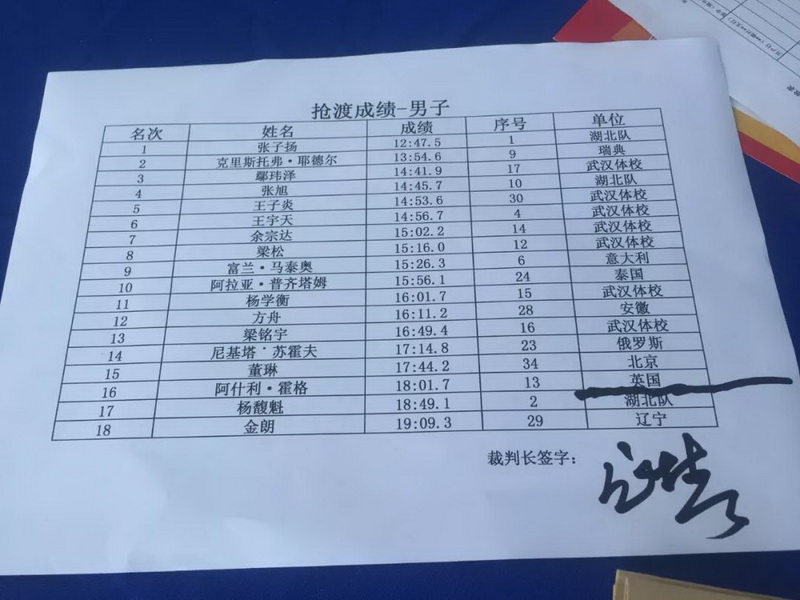 抢渡成绩-男子
名次 姓名 成绩 序号 单位
1 张子扬 12:47.5 1 湖北队
2 克里斯托弗·耶德尔 13:54.6 9 瑞典
3 鄢玮泽 14:41.9 17 武汉体校
4 张旭 14:45.7 10 湖北队
5 王子炎 14:53.6 30 武汉体校
6 王宇天 14:56.7 4 武汉体校
7 余宗达 15:02.2 14 武汉体校
8 梁松 15:16.0 12 武汉体校
9 富兰·马泰奥 15:26.3 6 意大利
10 阿拉亚·普齐塔姆 15:56.1 24 泰国
11 杨学衡 16:01.7 15 武汉体校
12 方舟 16:11.2 28 安徽
13 梁铭宇 16:49.4 16 武汉体校
14 尼基塔·苏霍夫 17:14.8 23 俄罗斯
15 董琳 17:44.2 34 北京
16 阿什利·霍格 18:01.7 13 英国
17 杨馥魁 18:49.1 2 湖北队
18 金朗 19:09.3 29 辽宁
裁判长签字：